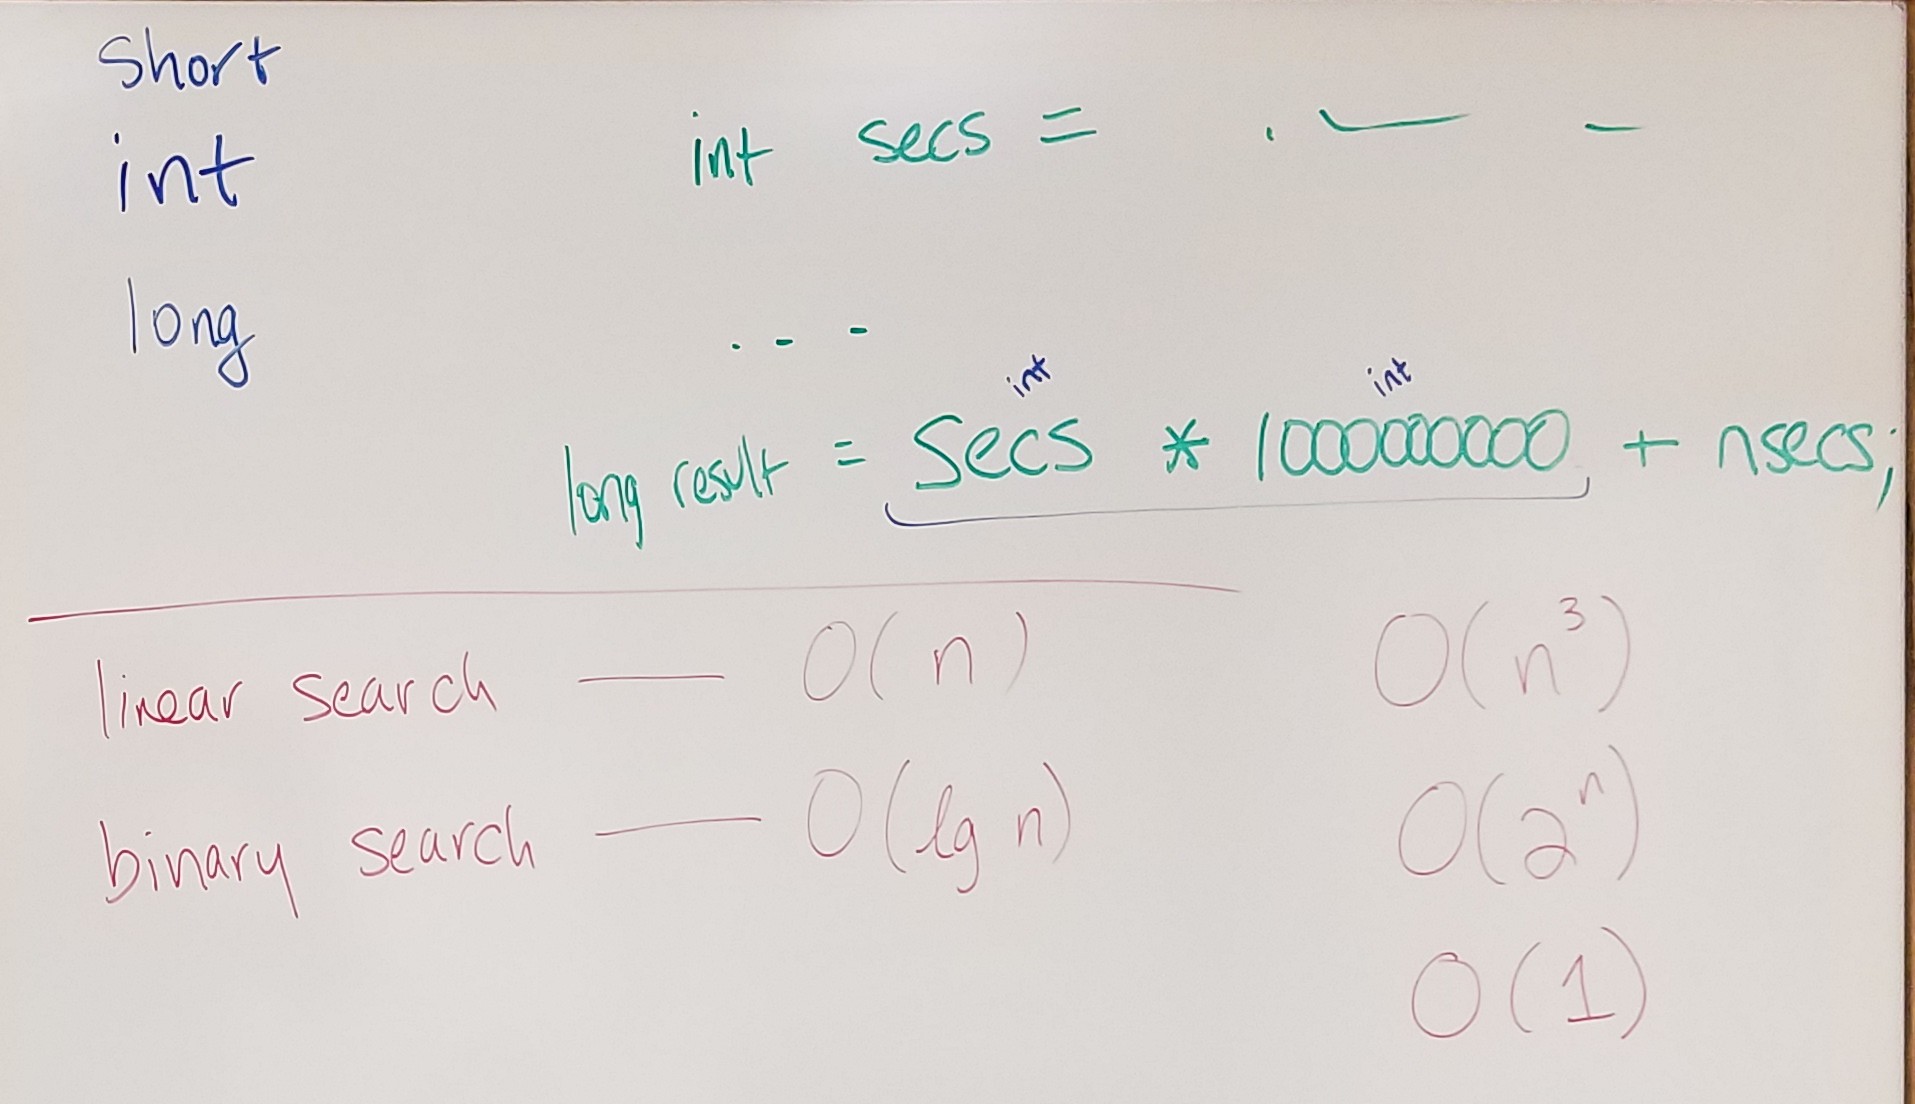 short
int
int secs =
long
. - -
int int
long result = Secs * 1000000000 + nsecs;
linear search — O(n) O(n³)
binary search — O(lg n) O(2ⁿ)
O(1)